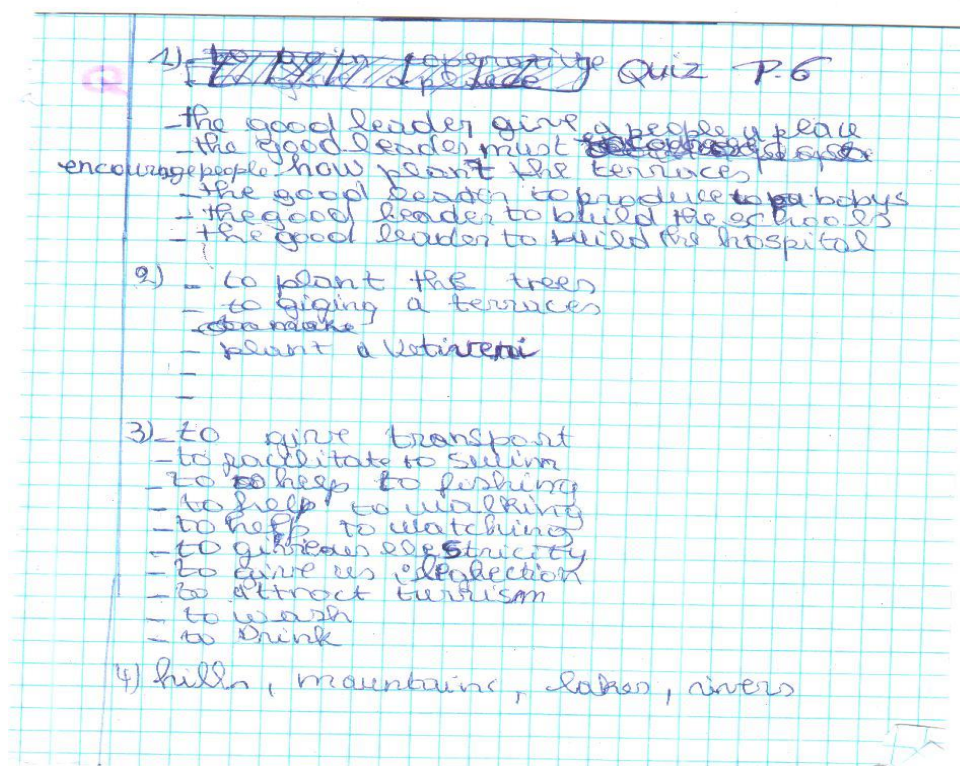 1) Quiz P.6
- the good leader give a people a peace
- the good leader must
encourage people how plant the terraces
- the good leader to produce babys
- the good leader to build the schools
- the good leader to build the hospital
2) - to plant the trees
- to giging a terraces
- plant a
-
-
3) - to give transport
- to facilitate to swim
- to help to fishing
- to help to walking
- to help to watching
- to give us elestricity
- to give us
- to attract turrism
- to wash
- to Drink
4) hills, mountains, lakes, rivers